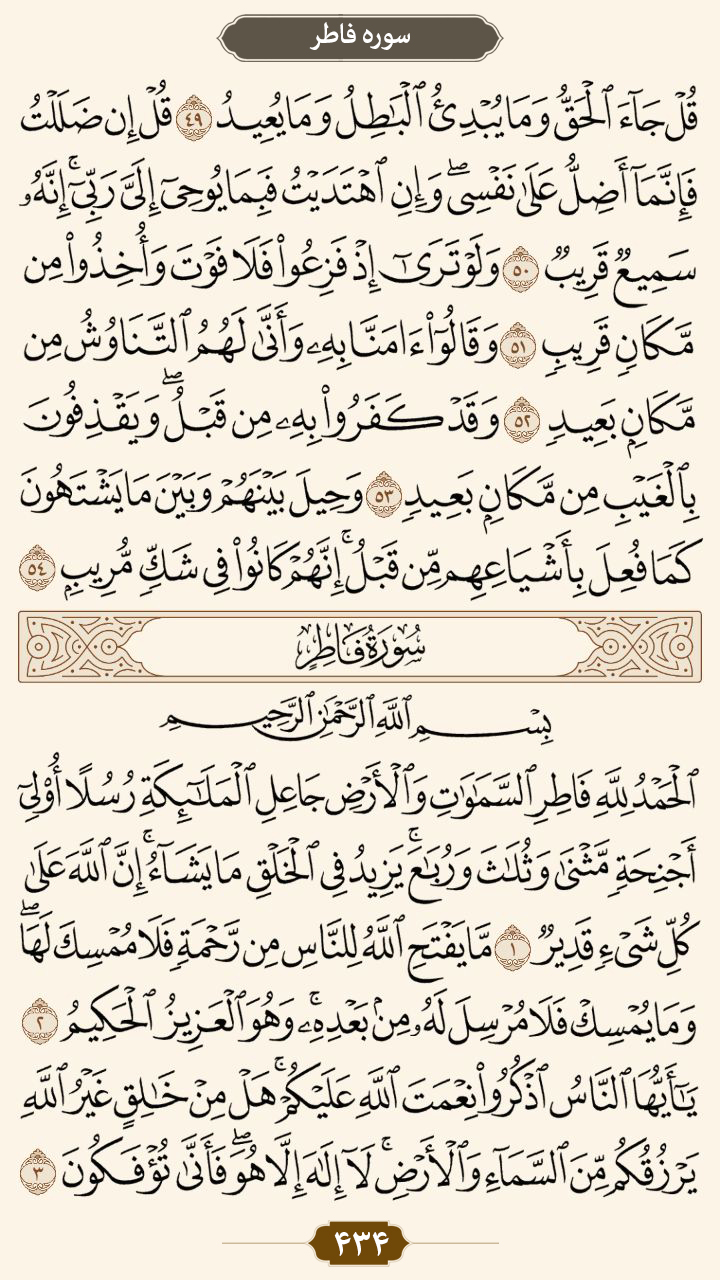 سوره فاطر
قُلْ جَآءَ ٱلْحَقُّ وَمَا يُبْدِئُ ٱلْبَٰطِلُ وَمَا يُعِيدُ ٤٩ قُلْ إِن ضَلَلْتُ
فَإِنَّمَآ أَضِلُّ عَلَىٰ نَفْسِىۖ وَإِنِ ٱهْتَدَيْتُ فَبِمَا يُوحِىٓ إِلَىَّ رَبِّىٓۚ إِنَّهُۥ
سَمِيعٌ قَرِيبٌ ٥٠ وَلَوْ تَرَىٰٓ إِذْ فَزِعُوا۟ فَلَا فَوْتَ وَأُخِذُوا۟ مِن
مَّكَانٍ قَرِيبٍ ٥١ وَقَالُوٓا۟ ءَامَنَّا بِهِۦ وَأَنَّىٰ لَهُمُ ٱلتَّنَاوُشُ مِن
مَّكَانٍۭ بَعِيدٍ ٥٢ وَقَدْ كَفَرُوا۟ بِهِۦ مِن قَبْلُۖ وَيَقْذِفُونَ
بِٱلْغَيْبِ مِن مَّكَانٍۭ بَعِيدٍ ٥٣ وَحِيلَ بَيْنَهُمْ وَبَيْنَ مَا يَشْتَهُونَ
كَمَا فُعِلَ بِأَشْيَاعِهِم مِّن قَبْلُۚ إِنَّهُمْ كَانُوا۟ فِى شَكٍّ مُّرِيبٍۭ ٥٤
سُورَةُ فَاطِرٍ
بِسْمِ ٱللَّهِ ٱلرَّحْمَٰنِ ٱلرَّحِيمِ
ٱلْحَمْدُ لِلَّهِ فَاطِرِ ٱلسَّمَٰوَٰتِ وَٱلْأَرْضِ جَاعِلِ ٱلْمَلَٰٓئِكَةِ رُسُلًا أُو۟لِىٓ
أَجْنِحَةٍ مَّثْنَىٰ وَثُلَٰثَ وَرُبَٰعَۚ يَزِيدُ فِى ٱلْخَلْقِ مَا يَشَآءُۚ إِنَّ ٱللَّهَ عَلَىٰ
كُلِّ شَىْءٍ قَدِيرٌ ١ مَّا يَفْتَحِ ٱللَّهُ لِلنَّاسِ مِن رَّحْمَةٍ فَلَا مُمْسِكَ لَهَاۖ
وَمَا يُمْسِكْ فَلَا مُرْسِلَ لَهُۥ مِنۢ بَعْدِهِۦۚ وَهُوَ ٱلْعَزِيزُ ٱلْحَكِيمُ ٢
يَٰٓأَيُّهَا ٱلنَّاسُ ٱذْكُرُوا۟ نِعْمَتَ ٱللَّهِ عَلَيْكُمْۚ هَلْ مِنْ خَٰلِقٍ غَيْرُ ٱللَّهِ
يَرْزُقُكُم مِّنَ ٱلسَّمَآءِ وَٱلْأَرْضِۚ لَآ إِلَٰهَ إِلَّا هُوَۖ فَأَنَّىٰ تُؤْفَكُونَ ٣
۴۳۴